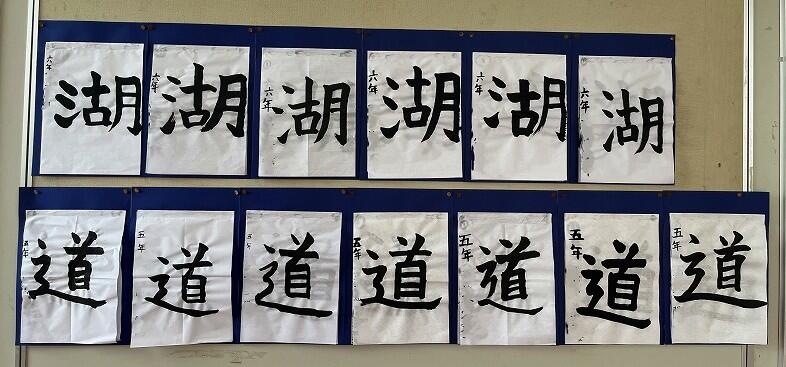 六年 湖
六年 湖
六年 湖
六年 湖
六年 湖
六年 湖
五年 道
五年 道
五年 道
五年 道
五年 道
五年 道
五年 道